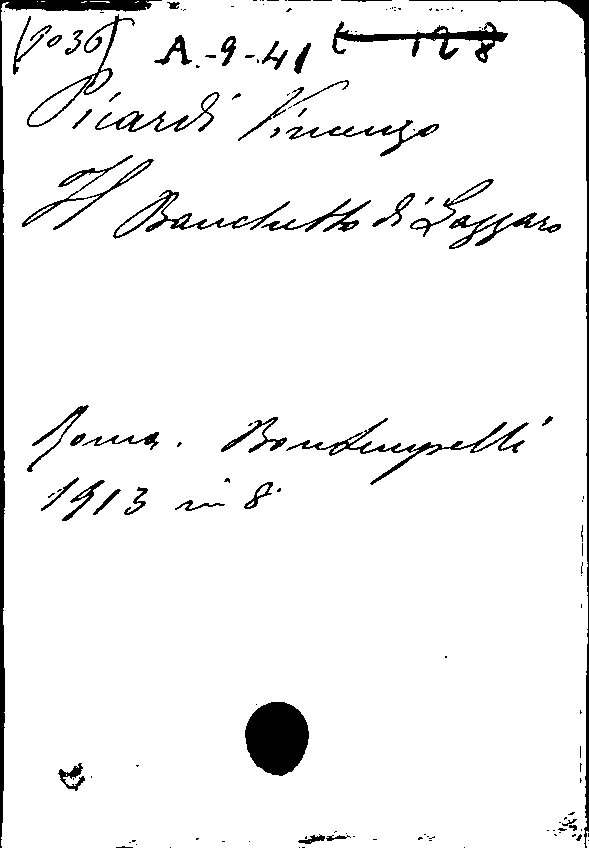 (2036) A.-9-41
Picardi Vincenzo
Il Banchetto di Lazzaro
Roma. Bontempelli
1913 in 8.